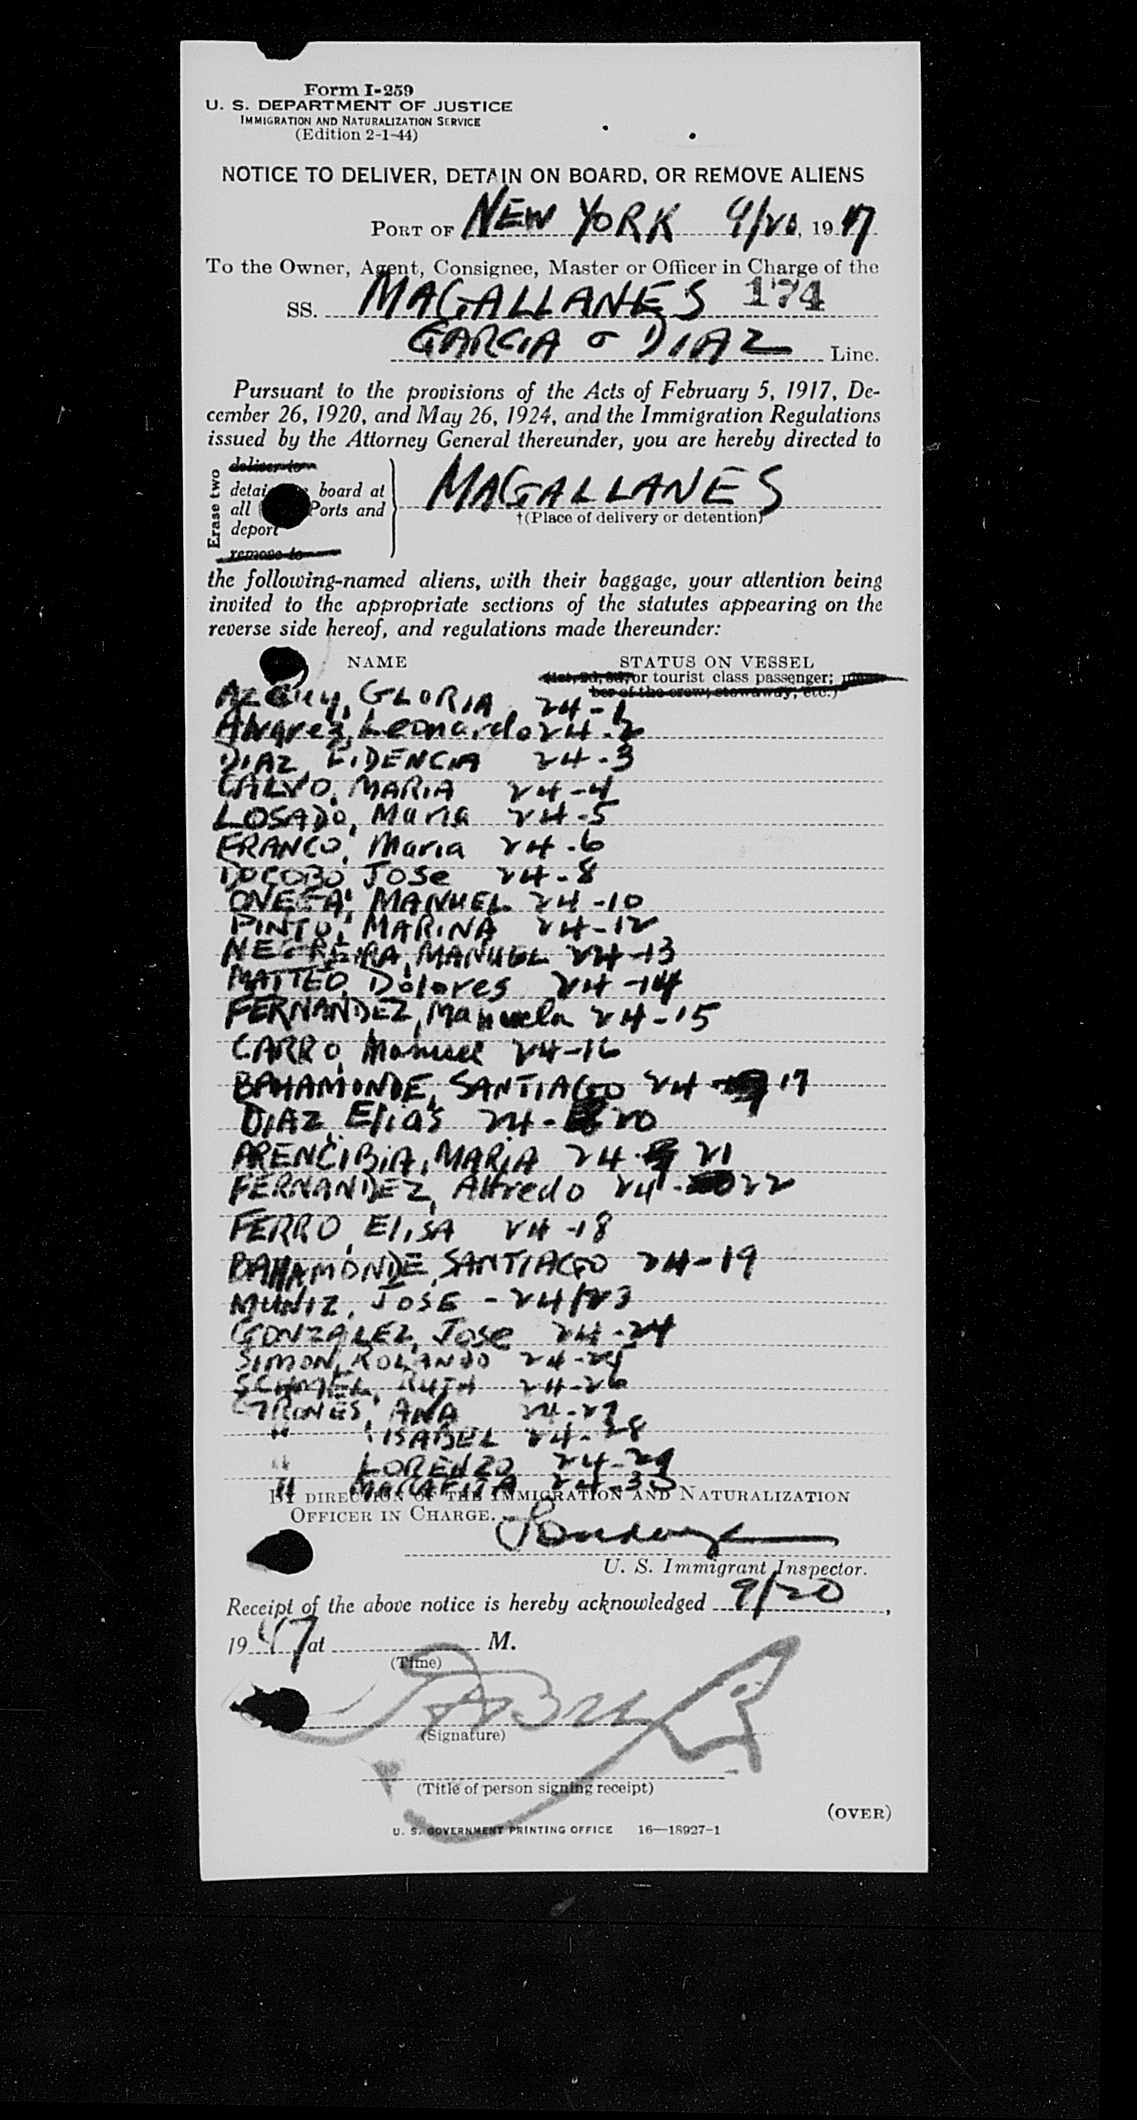 Form I-259
U. S. DEPARTMENT OF JUSTICE
IMMIGRATION AND NATURALIZATION SERVICE
(Edition 2-1-44)
NOTICE TO DELIVER, DETAIN ON BOARD, OR REMOVE ALIENS
PORT OF NEW YORK 9/20, 1947
To the Owner, Agent, Consignee, Master or Officer in Charge of the
SS. MAGALLANES 174
GARCIA & DIAZ Line.
Pursuant to the provisions of the Acts of February 5, 1917, De-
cember 26, 1920, and May 26, 1924, and the Immigration Regulations
issued by the Attorney General thereunder, you are hereby directed to
Erase two
deliver to
board at
all Ports and
deport
remove to
MAGALLANES
†(Place of delivery or detention)
the following-named aliens, with their baggage, your attention being
invited to the appropriate sections of the statutes appearing on the
reverse side hereof, and regulations made thereunder:
NAME STATUS ON VESSEL
(1st, 2d, 3d, or tourist class passenger; mem-
ber of the crew; stowaway, etc.)
GLORIA 24-1
Alvarez, Leonardo 24-2
DIAZ FIDENCIA 24-3
CALVO, MARIA 24-4
LOSADO, Maria 24-5
FRANCO, Maria 24-6
DOCOBO JOSE 24-8
MANUEL 24-10
PINTO, MARINA 24-12
NEGREIRA, MANUEL 24-13
MATTEO, Dolores 24-14
FERNANDEZ, Manuela 24-15
CARRO, Manuel 24-16
BAHAMONDE, SANTIAGO 24-17
DIAZ, Elias 24-20
ARENCIBIA, MARIA 24-21
FERNANDEZ, Alfredo 24-22
FERRO, ELISA 24-18
BAHAMONDE, SANTIAGO 24-19
MUNIZ, JOSE - 24/23
GONZALEZ, Jose 24-24
SIMON, ROLANDO 24-25
RUTH 24-26
ANA 24-27
" ISABEL 24-28
" LORENZO 24-29
" 24-30
BY DIRECTION OF THE IMMIGRATION AND NATURALIZATION
OFFICER IN CHARGE.
U. S. Immigrant Inspector.
Receipt of the above notice is hereby acknowledged 9/20,
1947, at M.
(Time)
(Signature)
(Title of person signing receipt)
(OVER)
U. S. GOVERNMENT PRINTING OFFICE 16—18927-1